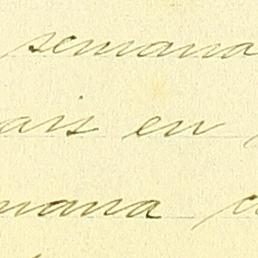 semana
ais en
mana